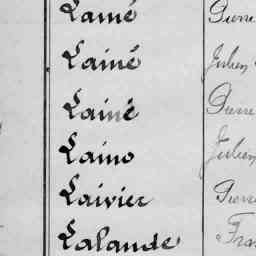 Lainé Pierre
Lainé Julien
Lainé Pierre
Laino Julien
Laivier Pierre
Lalande